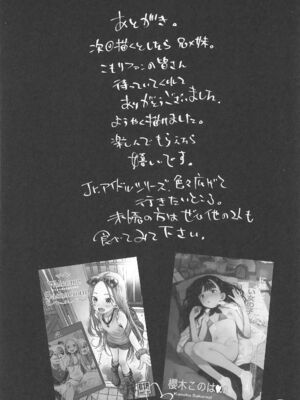 あとがき。
次回描くとしたら 兄×妹。
こもりファンの皆さん
待っていてくれて
ありがとうございました。
ようやく描けました。
楽しんでもらえたら
嬉しいです。
Jr.アイドルシリーズ、色々広げて
行きたいところ。
未読の方はぜひ他の2人も
食べてみて下さい。
櫻木このは
Konoha Sakuragi